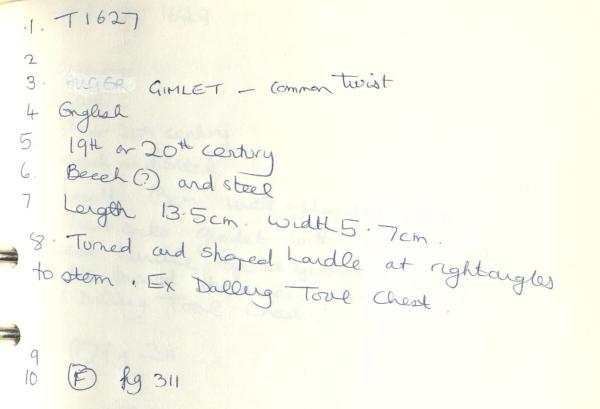 1. T1627
2
3. AUGER GIMLET - common twist
4 English
5 19th or 20th century
6. Beech (?) and steel
7 Length 13.5cm. width 5.7cm.
8. Turned and shaped handle at rightangles
to stem. Ex Dalling Tool Chest.
9
10 (F) fig 311